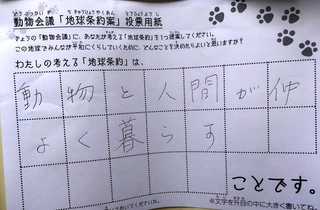 動物会議「地球条約案」投票用紙
きょうの「動物会議」に、あなたが考える「地球条約」を1つ提案してください。
この地球でみんなが平和にくらしていくために、どんなことを決めたらよいと思いますか?
わたしの考える「地球条約」は、
動物と人間が仲
よく暮らす
ことです。
※文字を升目の中に大きく書いてね。